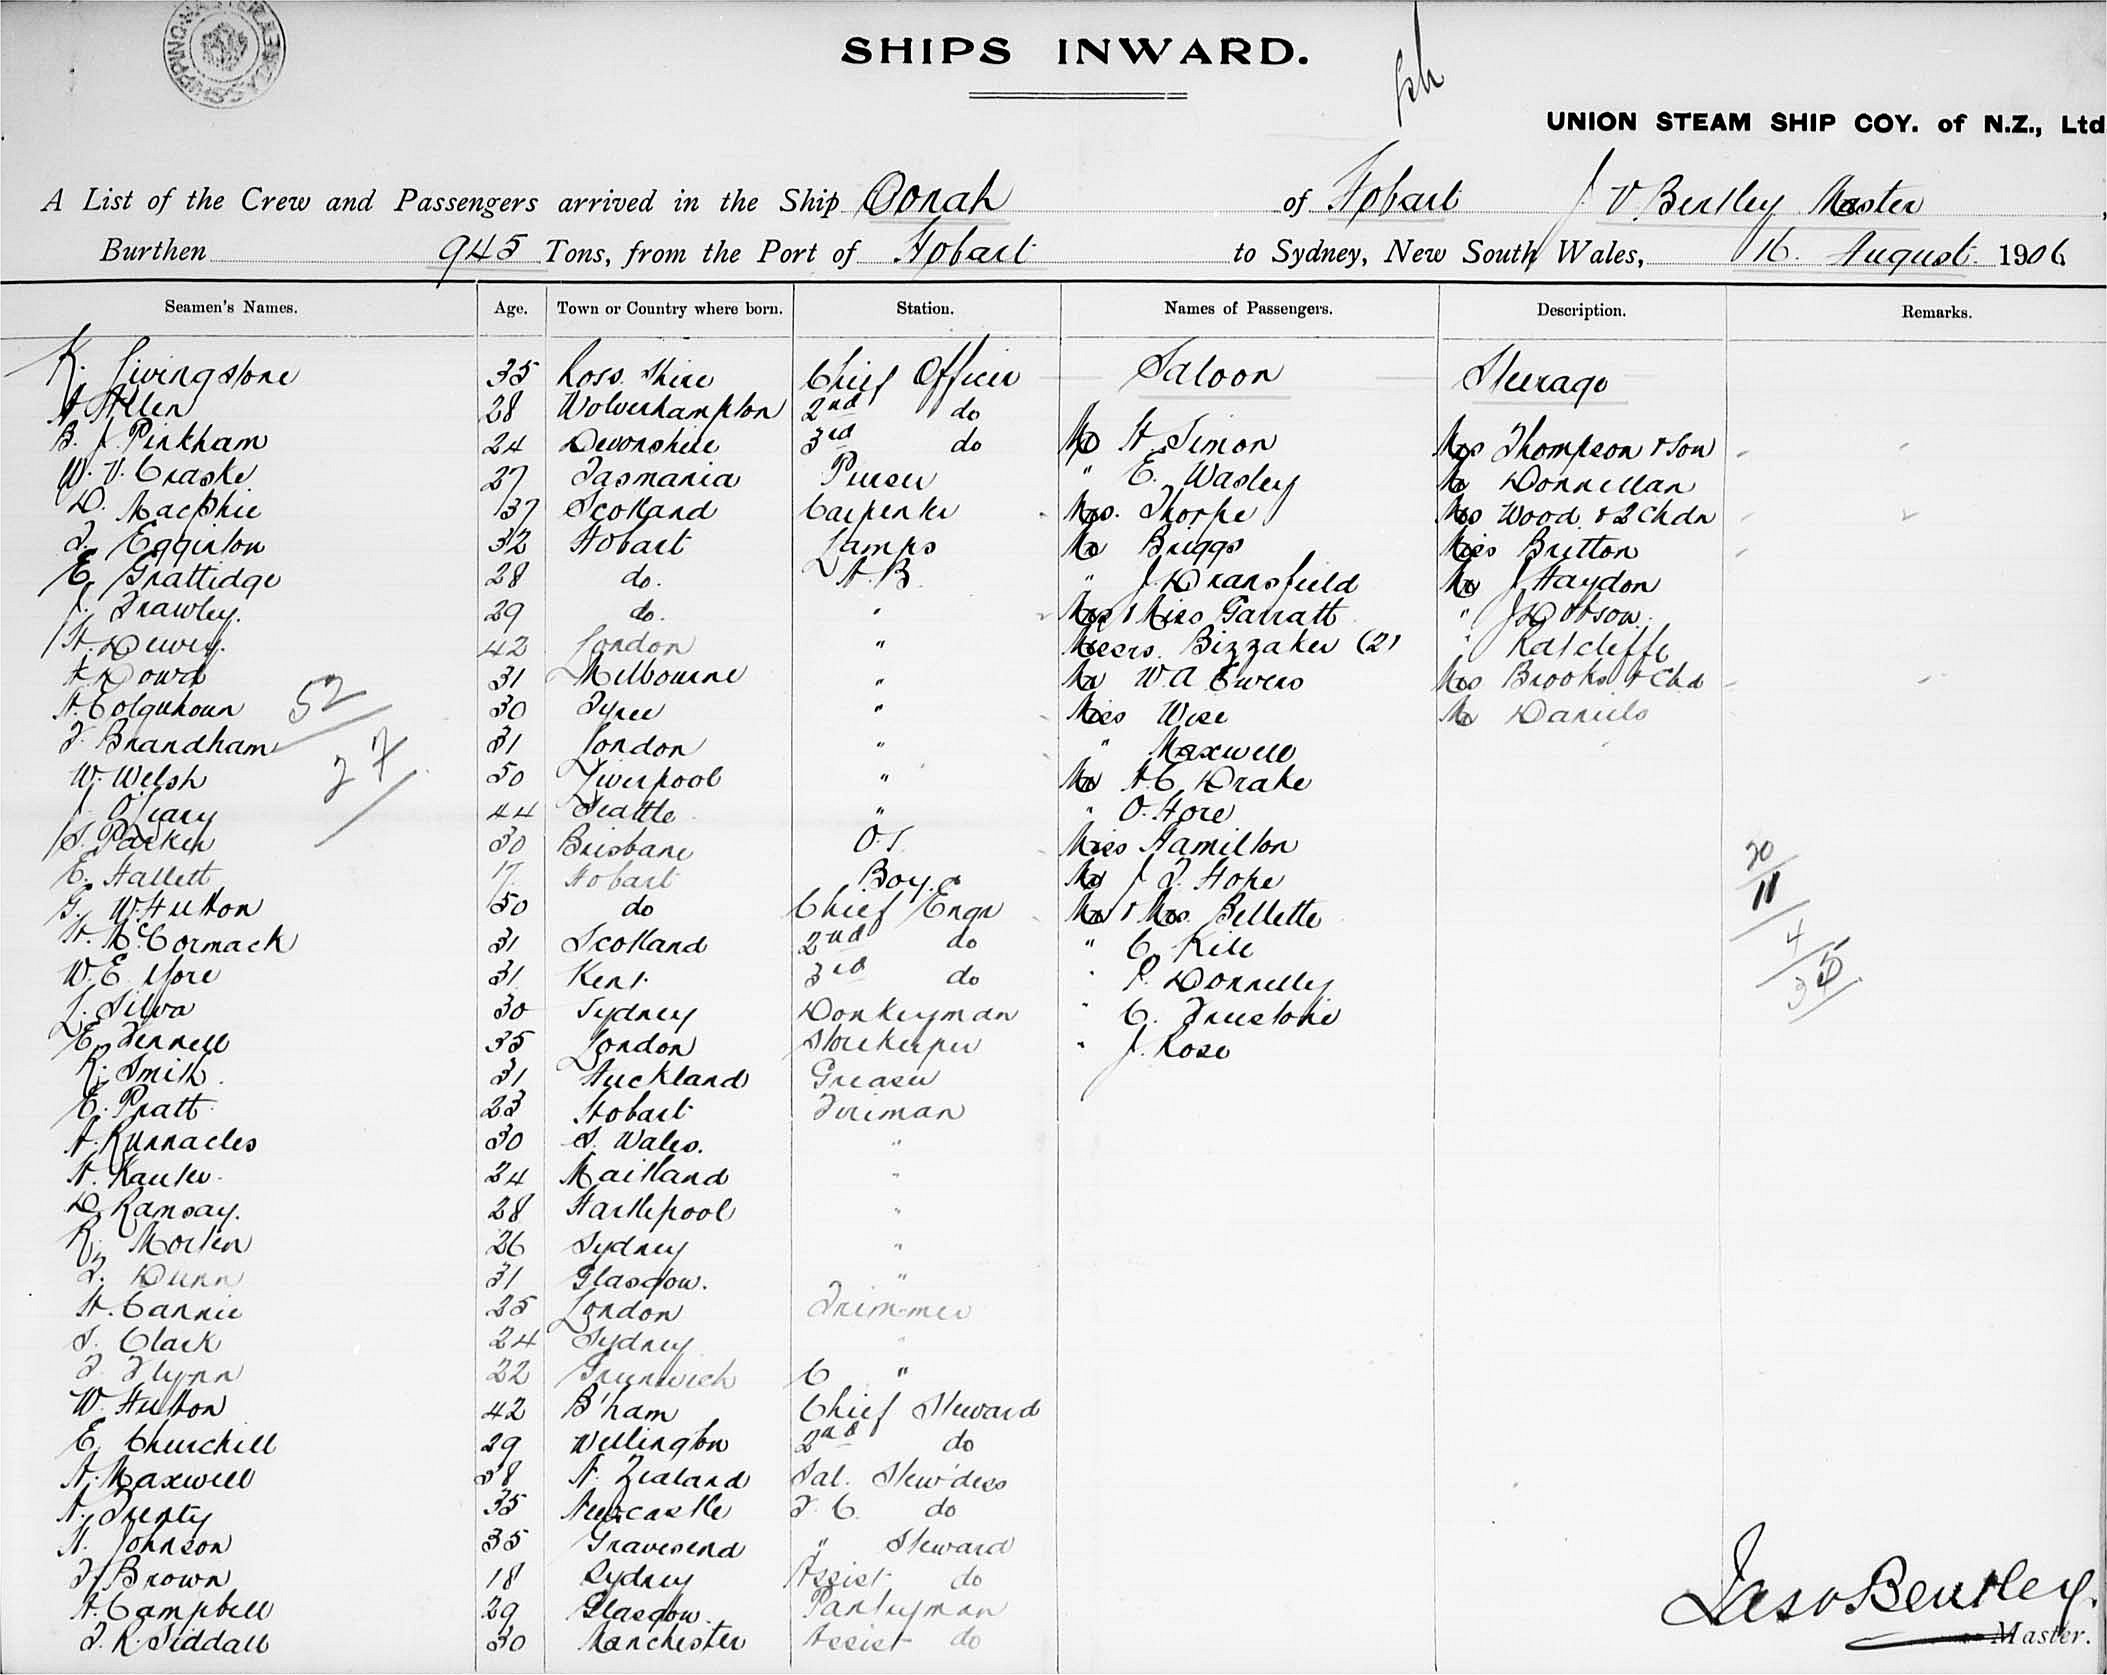 SHIPS INWARD.
UNION STEAM SHIP COY. of N.Z., Ltd
A List of the Crew and Passengers arrived in the Ship Oonah of Hobart J V Bentley Master
Burthen 945 Tons, from the Port of Hobart to Sydney, New South Wales, 16. August. 1906
Seamen's Names. Age. Town or Country where born. Station. Names of Passengers. Description. Remarks.
K. Livingstone 35 Ross Shire Chief Officer Saloon Steerage
A Allen 28 Wolverhampton 2nd do
B. J. Pinkham 24 Devonshire 3rd do Mr H Simon Mrs Thompson & Son
W. V. Craske 27 Tasmania Purser " E. Wasley Mr Donnellan
D. MacPhie 37 Scotland Carpenter Mrs. Thorpe Mrs Wood & 2 Chdn
F. Egginton 32 Hobart Lamps Mr Briggs Miss Britton
E. Grattidge 28 do. A.B. " J. Dransfield Mr J Haydon
J. Frawley. 29 do. " Mrs & Miss Garratt " J Dobson.
H. Dewey. 42 London " Messrs. Bizzaker (2) " Ratcliffe
A. Dowd 31 Melbourne " Mr W.A Ewens Mrs Brooks & Chd
52
A. Colquhoun 30 Tyree " Miss Wise Mr Daniels
F. Brandham 31 London " " Maxwell
27
W. Welsh 50 Liverpool " Mr A.C Drake
J. O'Leary 44 Seattle " " O. Hore
S. Parker 30 Brisbane O.S. Miss Hamilton
20
E. Hallett 17 Hobart Boy. Mr J. F. Hope
11
G. W. Hutton 50 do Chief Engr Mr & Mrs. Bellette
4
H. McCormack 31 Scotland 2nd do " C. Kile
W. E. Yore 31 Kent. 3rd do " P. Donnelly
L. Silva 30 Sydney Donkeyman " C. Freestone
E. Fennell 35 London Storekeeper " J. Rose
R. Smith. 31 Auckland Greaser
C. Pratt 23 Hobart Fireman
A. Runnacles 30 S. Wales. "
24 Maitland "
D. Ramsay. 28 Hartlepool "
R. Morten 26 Sydney "
F. Dunn 31 Glasgow. "
H. Cannie 25 London Trimmer
S. Clark 24 Sydney "
F. Flynn 22 Greenwich "
W. Hutton 42 B'ham Chief Steward
E. Churchill 29 Wellington 2nd do
A. Maxwell 38 N. Zealand Sal. Stew'dess
35 Newcastle F. C. do
H. Johnson 35 Gravesend " Steward
F. Brown 18 Sydney Assist do
A. Campbell 29 Glasgow. Pantryman
F. R. Siddall 30 Manchester Assist do
Bentley.
Master.